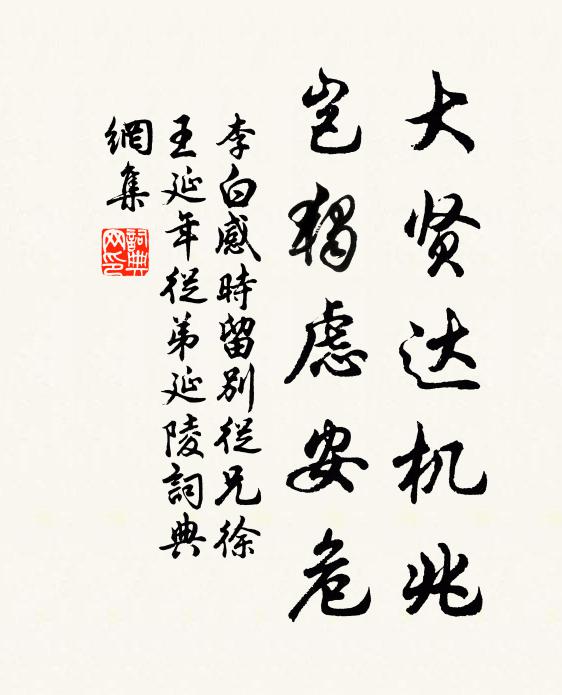 大贤达机兆
岂独虑安危
李白感時留別從兄徐
王延年從弟延陵詞典
網集
詞典网印